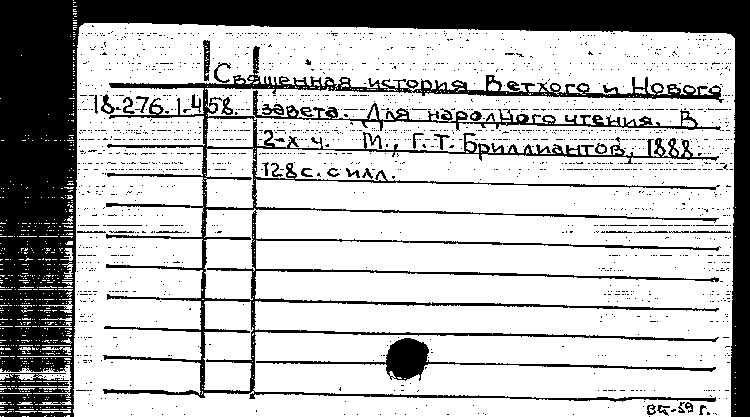 Священная история Ветхого и Нового
18.276.1.458. завета. Для народного чтения. В
2-х ч. М., Г. Т. Бриллиантов, 1888.
128 с. с илл.